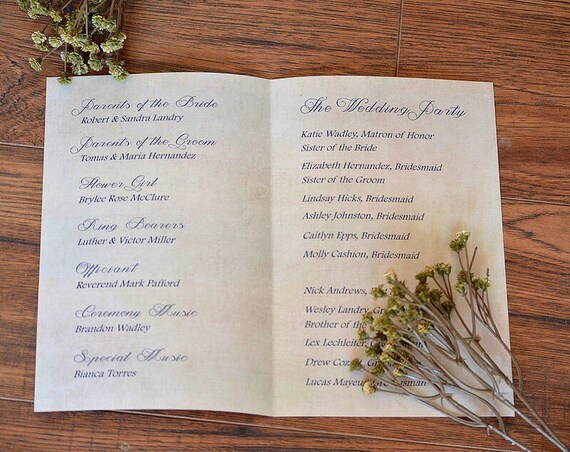 Parents of the Bride
Robert & Sandra Landry
Parents of the Groom
Tomas & Maria Hernandez
Flower Girl
Brylee Rose McClure
Ring Bearers
Luther & Victor Miller
Officiant
Reverend Mark Pafford
Ceremony Music
Brandon Wadley
Special Music
Bianca Torres
The Wedding Party
Katie Wadley, Matron of Honor
Sister of the Bride
Elizabeth Hernandez, Bridesmaid
Sister of the Groom
Lindsay Hicks, Bridesmaid
Ashley Johnston, Bridesmaid
Caitlyn Epps, Bridesmaid
Molly Cashion, Bridesmaid
Nick Andrews,
Wesley Landry,
Brother of the
Lex Lechleiter,
Drew
Lucas